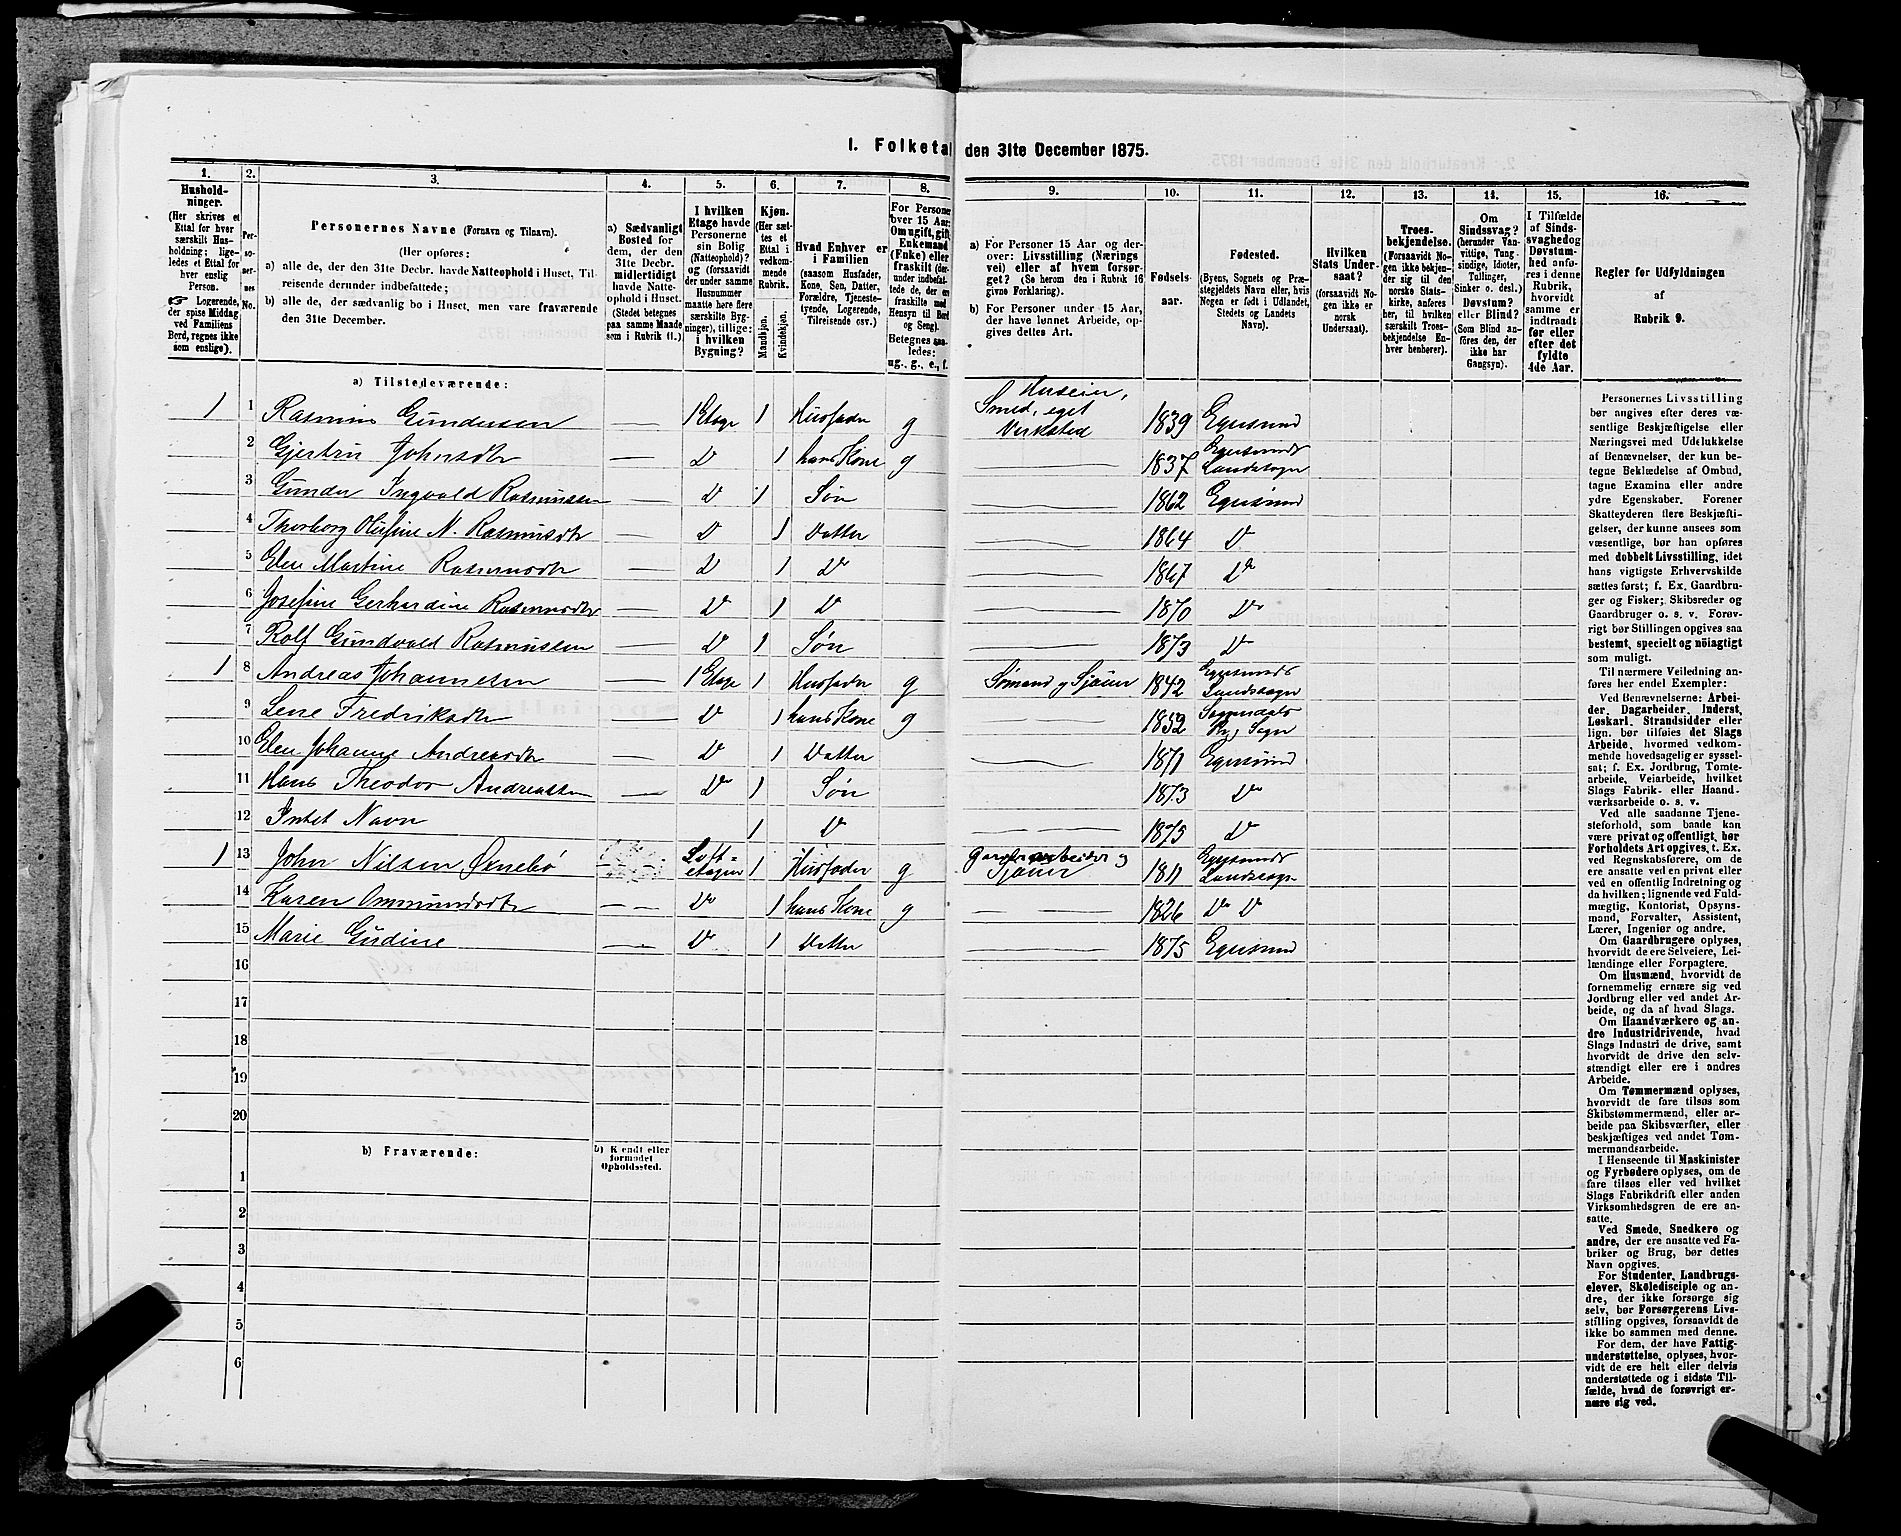 1. Folketal den 31te December 1875.
1.
Hushold-
ninger.
(Her skrives et
Ettal for hver
særskilt Hus-
holdning; lige-
ledes et Ettal for
hver enslig
Person.
Logerende,
der spise Middag
ved Familiens
Bord, regnes ikke
som enslige).
2.
Per-
so-
ner-
nes
No.
3.
Personernes Navne (Fornavn og Tilnavn).
(Her opføres:
a) alle de, der den 31te Decbr. havde Natteophold i Huset, Til-
reisende derunder indbefattede;
b) alle de, der sædvanlig bo i Huset, men vare fraværende
den 31te December.
4.
a) Sædvanligt
Bosted for
dem, der den
31te Decbr.
midlertidigt
havde Natte-
ophold i Huset.
(Stedet betegnes
paa samme Maade
som i Rubrik 11.)
5.
I hvilken
Etage havde
Personerne
sin Bolig
(Natteophold)?
og (forsaavidt
der under samme
Husnummer
maatte høre flere
særskilte Byg-
ninger), tillige:
i hvilken
Bygning?
6.
Kjøn.
(Her sæt-
tes et
Ettal i
vedkom-
mende
Rubrik.
Mandkjøn.
Kvindekjøn.
7.
Hvad Enhver er
i Familien
(saasom Husfader,
Kone, Søn, Datter,
Forældre, Tjeneste-
tyende, Logerende,
Tilreisende osv.)
8.
For Personer
over 15 Aar:
Om ugift, gift,
Enkemand
(Enke) eller
fraskilt (der-
under indbefat-
tede de, der ere
fraskilte med
Hensyn til Bord
og Seng).
Betegnes saa-
ledes:
ug., g., e., f.
9.
a) For Personer 15 Aar og der-
over: Livsstilling (Nærings
vei) eller af hvem forsør-
get? (Se herom den i Rubrik 16
givne Forklaring).
b) For Personer under 15 Aar,
der have lønnet Arbeide, op-
gives dettes Art.
10.
Fødsels-
aar.
11.
Fødested.
(Byens, Sognets og Præ-
stegjeldets Navn eller, hvis
Nogen er født i Udlandet,
Stedets og Landets
Navn).
12.
Hvilken
Stats Under-
saat?
(forsaavidt No-
gen ikke er
norsk
Undersaat).
13.
Troes-
bekjendelse.
(Forsaavidt No-
gen ikke bekjen-
der sig til den
norske Stats-
kirke, anføres
her, til hvilken
særskilt Troes-
bekjendelse En-
hver henhører).
14.
Om
Sindssvag?
(herunder Van-
vittige, Tung-
sindige, Idioter,
Tullinger,
Sinker o. desl.)
Døvstum?
eller Blind?
(Som Blind an-
føres den, der
ikke har
Gangsyn).
15.
I Tilfælde
af Sinds-
svaghed og
Døvstum-
hed anfø-
res i denne
Rubrik,
hvorvidt
samme er
indtraadt
før eller
efter det
fyldte
4de Aar.
16.
Regler for Udfyldningen
af
Rubrik 9.
a) Tilstedeværende:
1 1 Rasmus Gundersen 1 Etage 1 Husfader g Huseier, Smed, eget Verksted 1839 Egersund
2 Gjertru Johnsdtr D 1 hans Kone g 1837 Egersunds Landsogn
3 Gunder Ingvald Rasmussen D 1 Søn 1862 Egersund
4 Thorborg Olufine N. Rasmusdtr D 1 Datter 1864 D
5 Elen Martine Rasmusdtr D 1 D 1867 D
6 Josefine Gerhardine Rasmusdtr D 1 D 1870 D
7 Rolf Gundvald Rasmussen D 1 Søn 1873 D
1 8 Andreas Johannesen 1 Etage 1 Husfader g Sømand og Sjauer 1842 Egersunds Landsogn
9 Lene Fredriksdtr D 1 hans Kone g 1852 Sogndals Prg, Sogn
10 Elen Johanne Andreasdtr D 1 Datter 1871 Egersund
11 Hans Theodor Andreassen D 1 Søn 1873 D
12 Intet Navn 1 D 1875 D
1 13 John Nilsen Ørnebø Loft-etagen 1 Husfader g Gardarbeider og Sjauer 1811 Egersunds Landsogn
14 Karen Ommundsdtr D 1 hans Kone g 1826 D D
15 Marie Gudine D 1 Datter 1875 Egersund
16
17
18
19
20
b) Fraværende:
b) Kjendt eller
formodet
Opholdssted.
1
2
3
4
5
6
Personernes Livsstilling
bør angives efter deres væ-
sentlige Beskjæftigelse eller
Næringsvei med Udelukkelse
af Benævnelser, der kun be-
tegne Beklædelse af Ombud,
tagne Examina eller andre
ydre Egenskaber. Forener
Skatteyderen flere Beskjæfti-
gelser, der kunne ansees som
væsentlige, bør han opføres
med dobbelt Livsstilling, idet
hans vigtigste Erhvervskilde
sættes først; f. Ex. Gaardbru-
ger og Fisker; Skibsreder og
Gaardbruger o. s. v. Forøv-
rigt bør Stillingen opgives saa
bestemt, specielt og nøiagtigt
som muligt.
Til nærmere Veiledning an-
føres her endel Exempler:
Ved Benævnelserne: Arbei-
der, Dagarbeider, Inderst,
Løskarl, Strandsidder eller
lign. bør tilføies det Slags
Arbeide, hvormed vedkom-
mende hovedsagelig er syssel-
sat; f. Ex. Jordbrug, Tomte-
arbeide, Veiarbeide, hvilket
Slags Fabrik- eller Haand-
værksarbeide o. s. v.
Ved alle saadanne Tjene-
steforhold, som baade kan
være privat og offentligt, bør
Forholdets Art opgives, t. Ex.
ved Regnskabsførere, om de
ere ansatte ved en privat eller
ved en offentlig Indretning og
da hvilken; lignende ved Fuld-
mægtig, Kontorist, Opsyns-
mand, Forvalter, Assistent,
Lærer, Ingeniør og andre.
Om Gaardbrugere oplyses,
hvorvidt de ere Selveiere, Lei-
lændinge eller Forpagtere.
Om Husmænd, hvorvidt de
fornemmelig ernære sig ved
Jordbrug eller ved andet Ar-
beide, og da af hvad Slags.
Om Haandværkere og an-
dre Industridrivende, hvad
Slags Industri de drive, samt
hvorvidt de drive den selv-
stændigt eller ere i andres
Arbeide.
Om Tømmermænd oplyses,
hvorvidt de fare tilsøs som
Skibstømmermænd, eller ar-
beide paa Skibsværfter, eller
beskjæftiges ved andet Tøm-
mermandsarbeide.
I Henseende til Maskinister
og Fyrbødere oplyses, om de
fare tilsøs eller ved hvilket
Slags Fabrikdrift eller anden
Virksomhedsgren de ere an-
satte.
Ved Smede, Snedkere og
andre, der ere ansatte ved Fa-
briker og Brug, bør dettes
Navn opgives.
For Studenter, Landbrugs-
elever, Skoledisciple og an-
dre, der ikke forsørge sig
selv, bør Forsørgerens Livs-
stilling opgives, forsaavidt de
ikke bo sammen med denne.
For dem, der have Fattig-
understøttelse, oplyses, hvor-
vidt de ere helt eller delvis
understøttede og i sidste Til-
fælde, hvad de forøvrigt er-
nære sig ved.